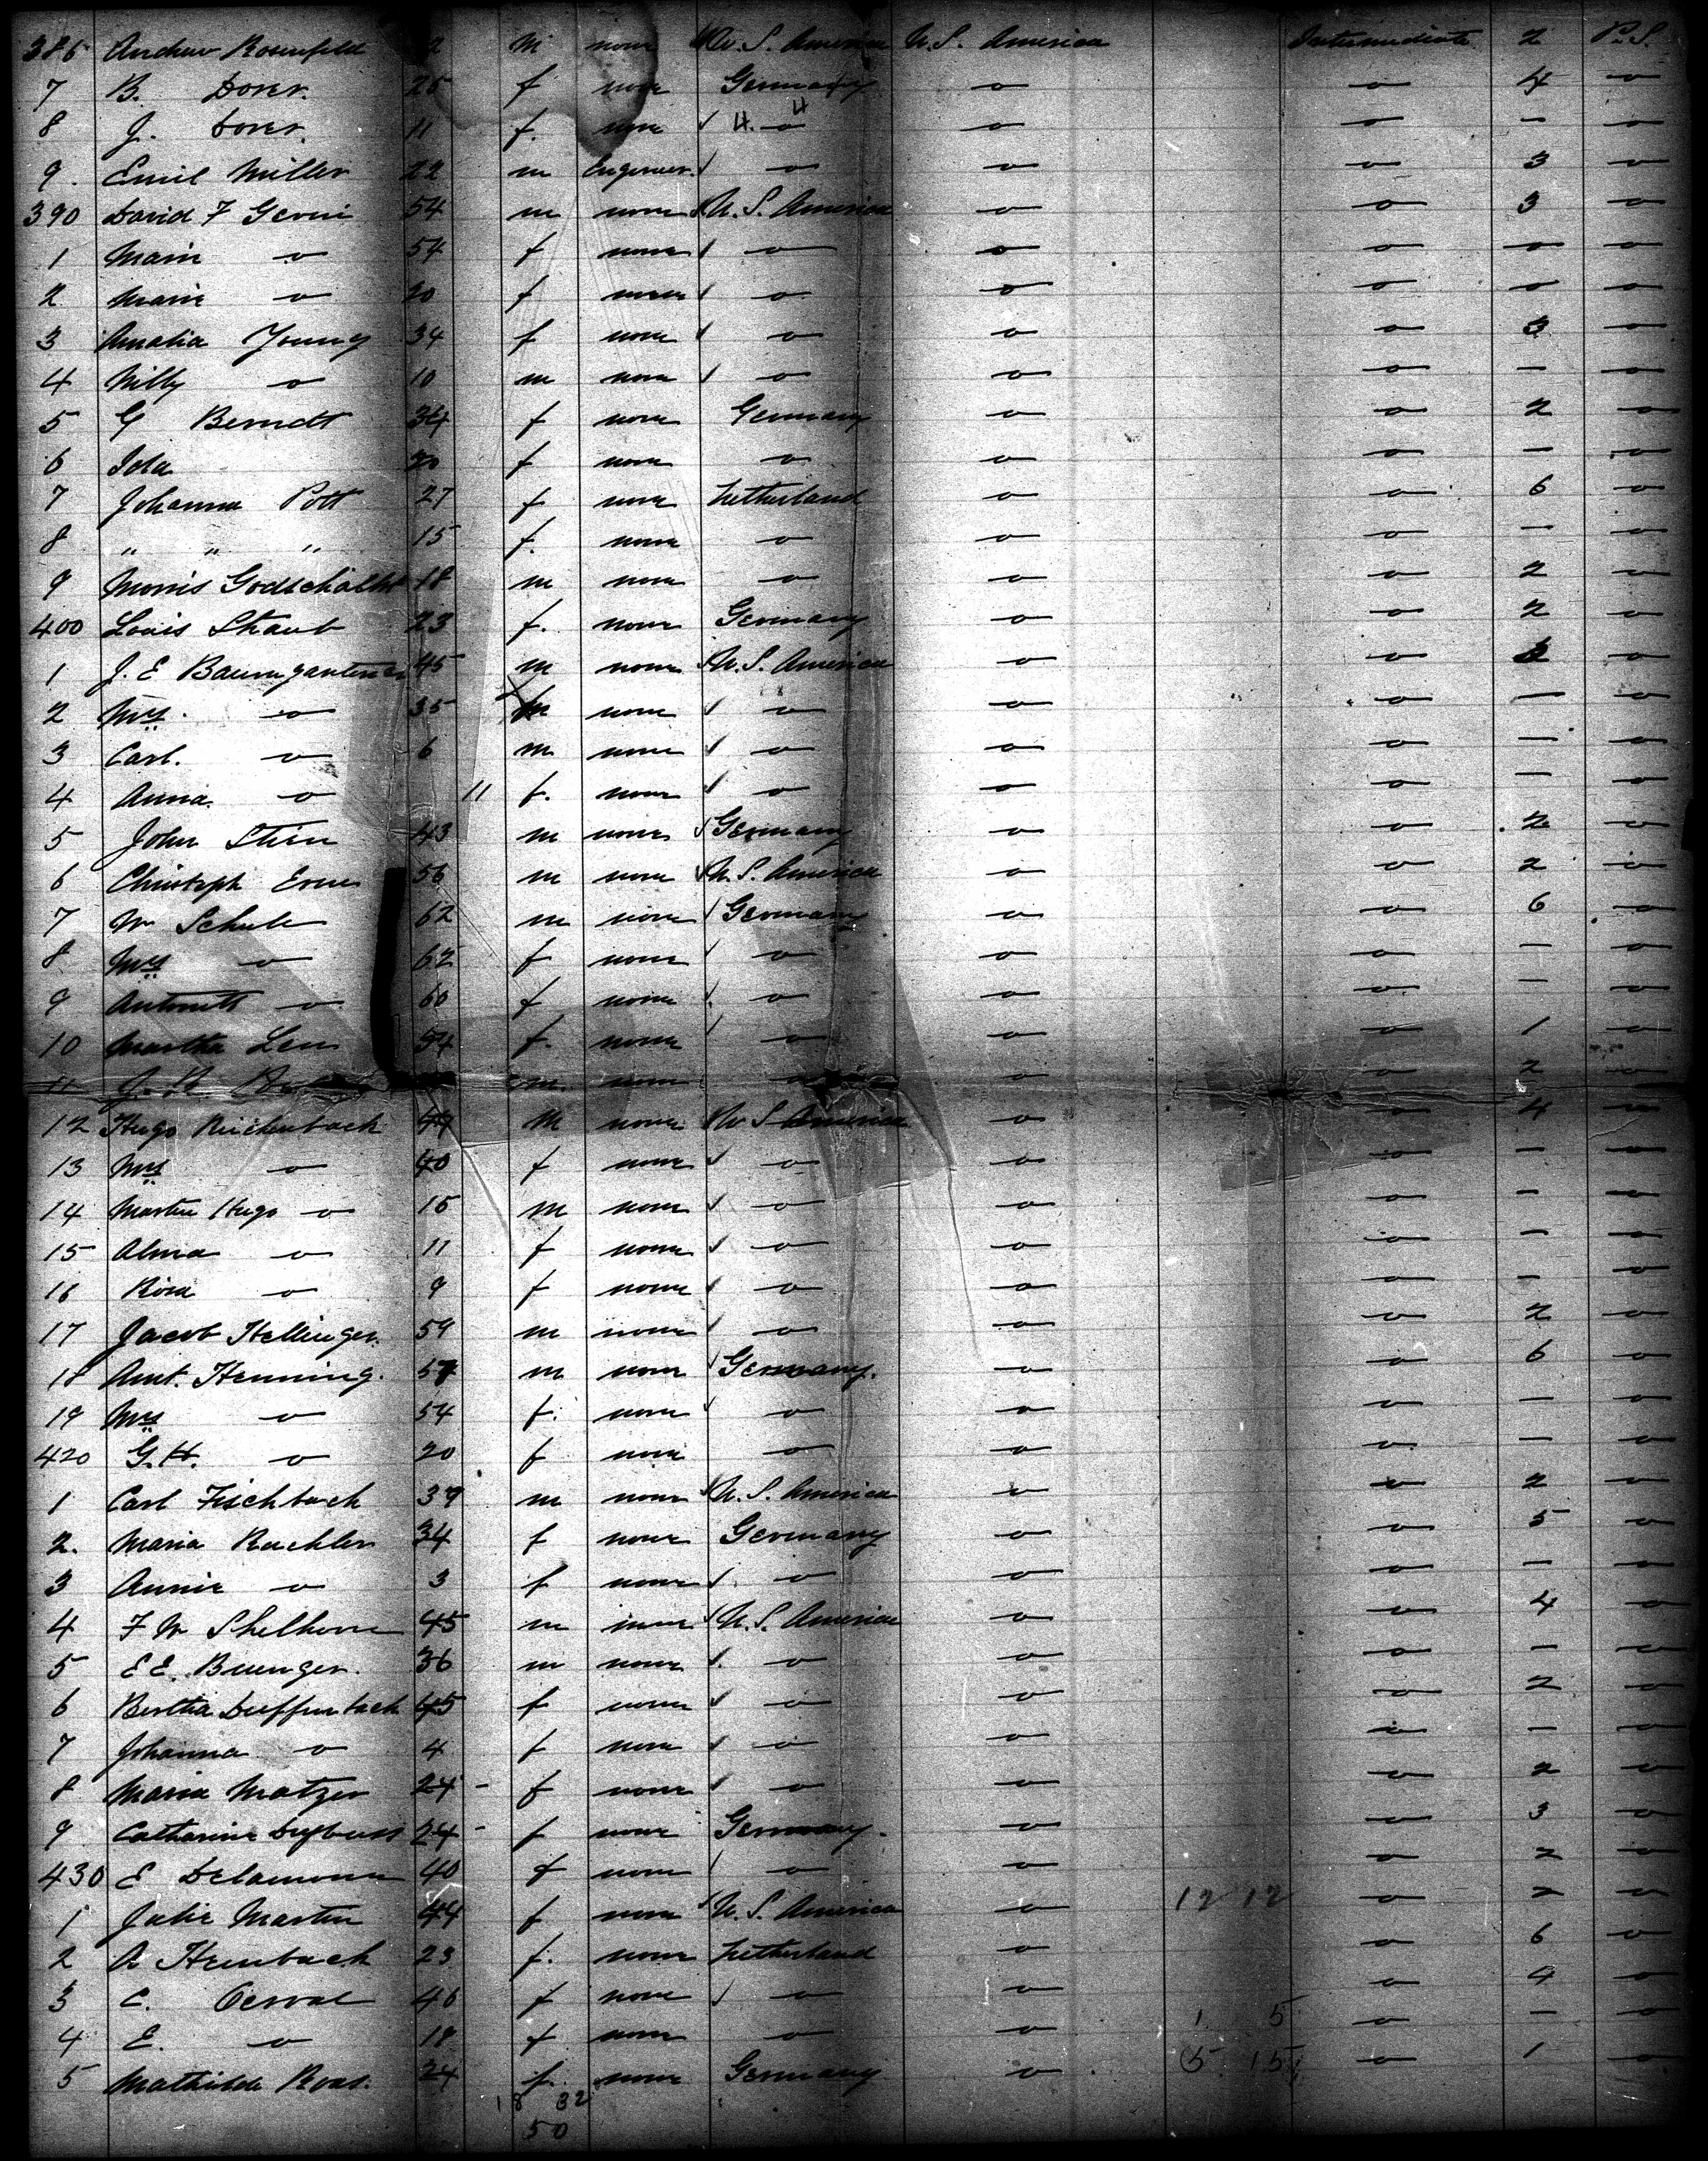 386 Andrew Rosenfeld 2 m none U. S. America U. S. America Intermediate 2 P.S.
7 B. Dorer. 25 f none Germany o o 4 o
8 J. Dorer. 11 f. none 4. o 4 o o - o
9. Emil Miller 22 m Engineer. o o o 3 o
390 David F 54 m none U. S. America o o 3 o
1 Marie o 54 f none o o o o o
2 Marie o 20 f none o o o o o
3 Amalia Young 34 f none o o o 3 o
4 Willy o 10 m none o o o - o
5 G Berndt 34 f none Germany o o 2 o
6 Ida 20 f none o o o - o
7 Johanna Pott 27 f none Netherland o o 6 o
8 " " " 15 f. none o o o - o
9 Morris Godschalk 18 m none o o o 2 o
400 Louis Staub 23 f. none Germany o o 2 o
1 J. E Baumgartner 45 m none U. S. America o o 3 o
2 Mrs. o 35 none o o o - o
3 Carl. o 6 m none o o o - o
4 Anna. o 11 f. none o o o - o
5 John Stein 43 m none Germany o o 2 o
6 Christoph 56 m none U. S. America o o 2 o
7 W Schule 62 m none Germany o o 6 o
8 Mrs o 62 f none o o o - o
9 Antonett o 60 f none o o o - o
10 Martha 54 f. none o o o 1 o
11 J. R. m. none o o o 2 o
12 Hugo Reichenbach 49 m none U S America o o 4 o
13 Mrs o 40 f none o o o - o
14 Martin Hugo o 15 m none o o o - o
15 Alma o 11 f none o o o - o
16 Rosa o 9 f none o o o - o
17 Jacob Hellinger. 59 m none o o o 2 o
18 Amt. Henning. 57 m none Germany. o o 6 o
19 Mrs o 54 f. none o o o - o
420 G. H. o 20 f none o o o - o
1 Carl Fischbach 39 m none U. S. America o o 2 o
2. Maria Ruchler 34 f none Germany o o 5 o
3 Annie o 3 f none o o o - o
4 F W Shelhorn 45 m none U. S. America o o 4 o
5 E E. Buenger. 36 m none o o o - o
6 Bertha Dieffenbach 45 f none o o o 2 o
7 Johanna o 4 f none o o o - o
8 Maria Matzer 24 - f none o o o 2 o
9 Catharine 24 - f none Germany. o o 3 o
430 E Delamonn 40 f none o o o 2 o
1 Julie Martin 44 f none U. S. America o 12 12 o 2 o
2 A Heimbach 23 f. none Netherland o o 6 o
3 C. 46 f none o o o 4 o
4 E. o 18 f none o o 1. 5 o - o
5 Mathilde Roos. 24 f. none Germany o 5 15 o 1 o
18 32
50